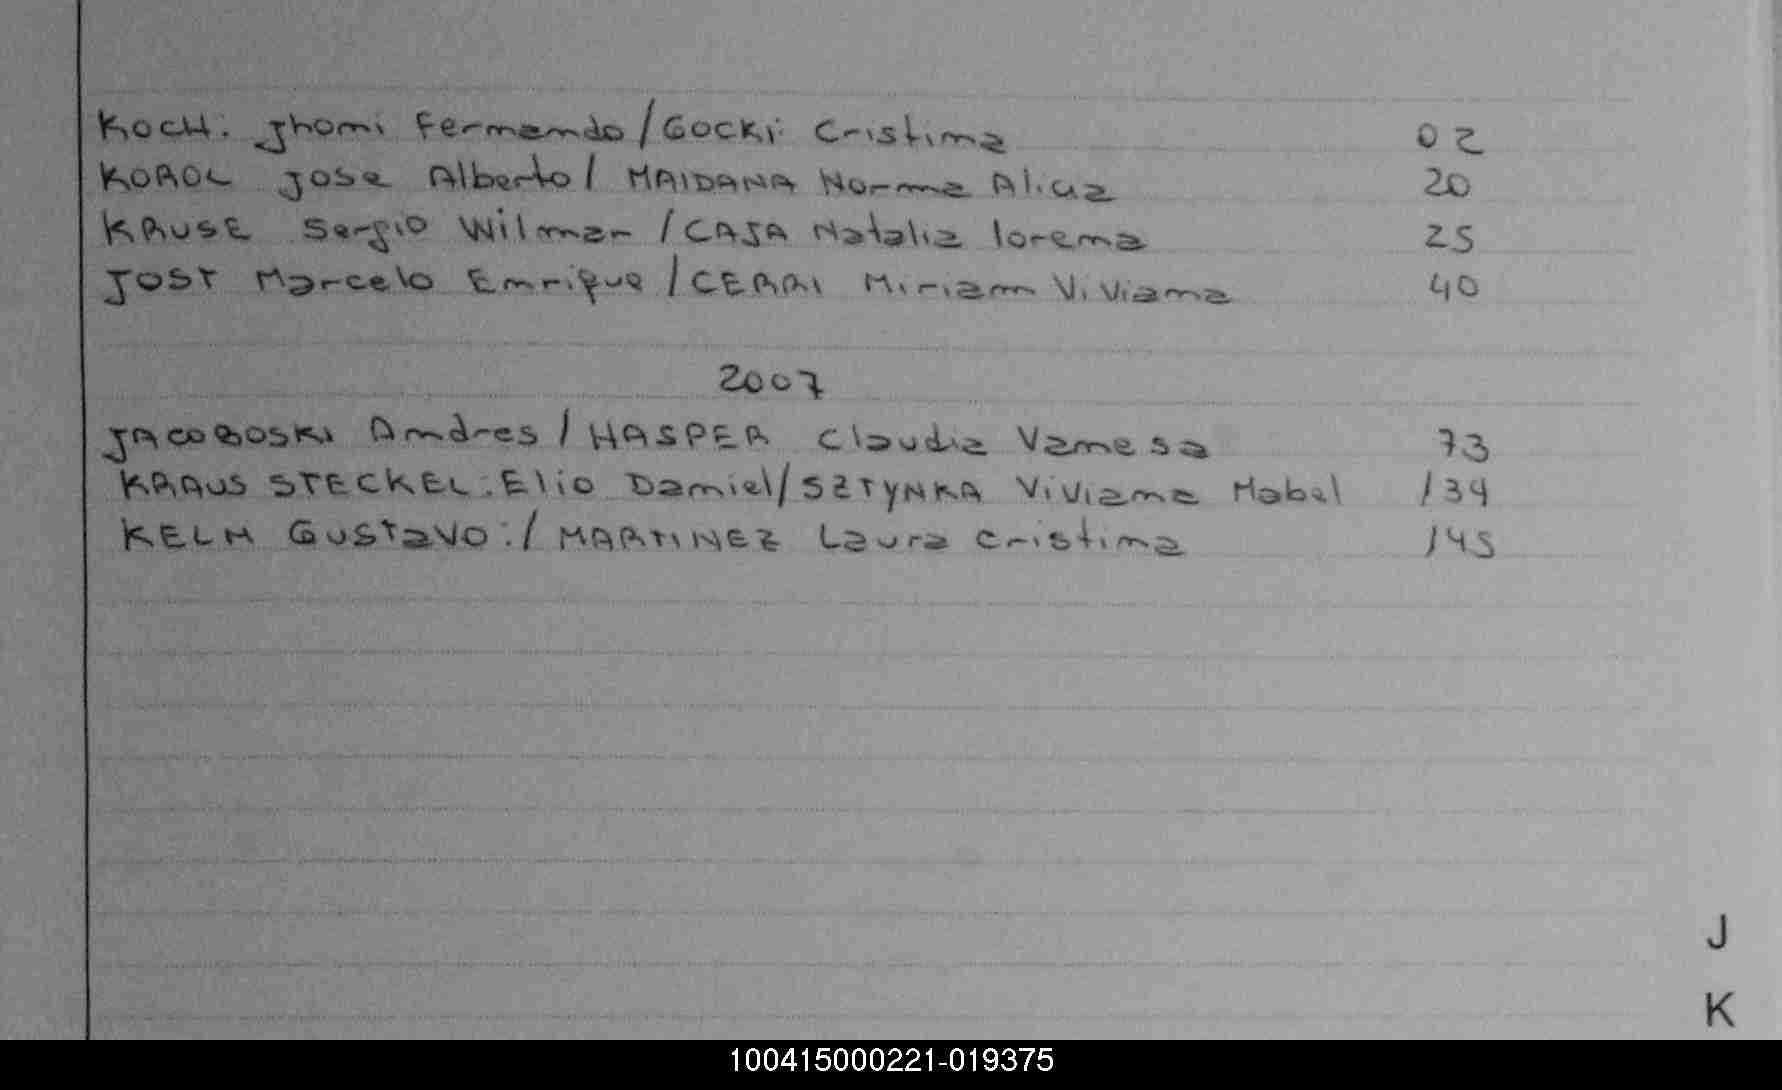 KOCH: Jhoni Fernando/GOCKI Cristina 02
KOROL Jose Alberto/ MAIDANA Norma Alicia 20
KRUSE Sergio Wilmar /CAJA Natalia lorena 25
JOST Marcelo Enrique /CERRI Miriam Viviana 40
2007
JACOBOSKI Andres / HASPER Claudia Vanesa 73
KRAUS STECKEL: Elio Daniel/SZTYNKA Viviana Mabel 134
KELM GUSTAVO:/ MARTINEZ Laura Cristina 145
J
K
100415000221-019375